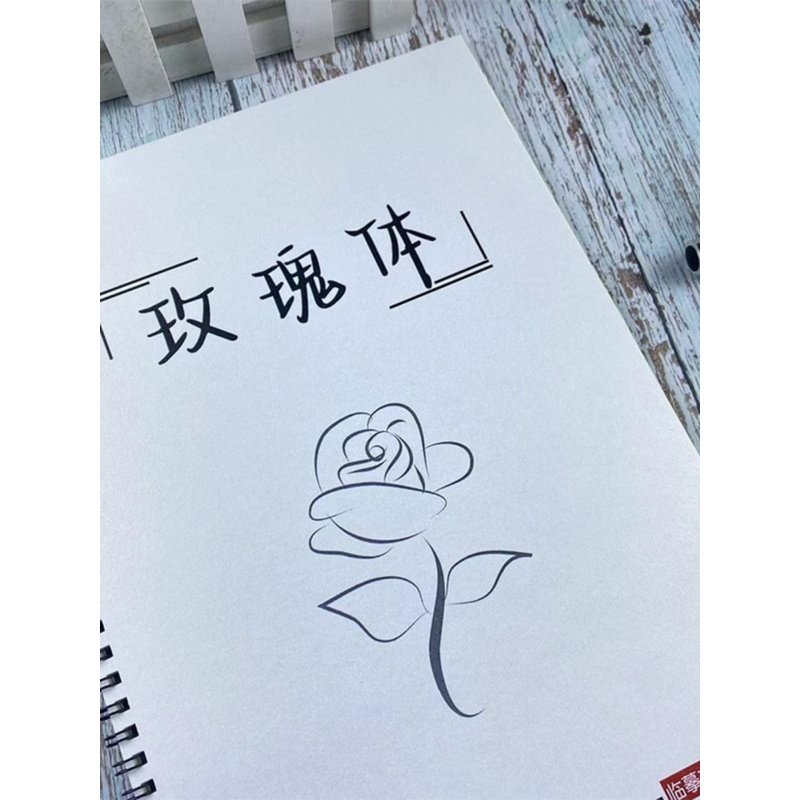 玫瑰体
临摹